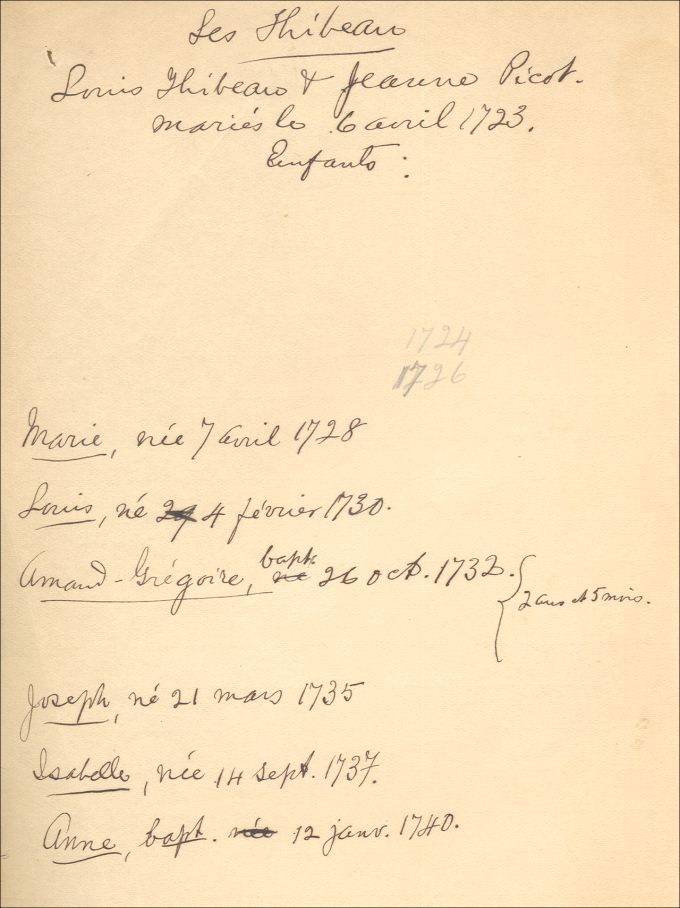 Les Thibeau
Louis Thibeau & Jeanne Picot.
mariés le 6 avril 1723.
Enfants :
1724
1726
Marie, née 7 avril 1728
Louis, né 29 4 février 1730.
Amand-Grégoire, bapt. né 26 oct. 1732.
2 ans et 5 mois.
Joseph, né 21 mars 1735
Isabelle, née 14 sept. 1737.
Anne, bapt. née 12 janv. 1740.